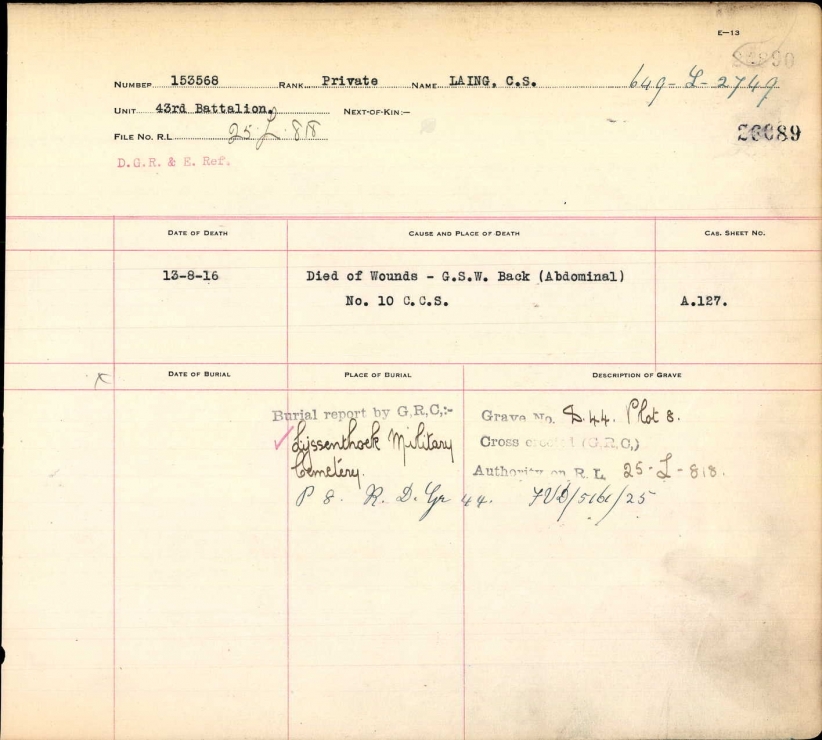 E—13
26890
NUMBER 153568 RANK Private NAME LAING, C.S. 649-L-2749
UNIT 43rd Battalion. NEXT-OF-KIN:—
FILE NO. R.L. 25-L-818
26089
D.G.R. & E. Ref.
DATE OF DEATH CAUSE AND PLACE OF DEATH CAS. SHEET NO.
13-8-16 Died of Wounds - G.S.W. Back (Abdominal)
No. 10 C.C.S. A.127.
DATE OF BURIAL PLACE OF BURIAL DESCRIPTION OF GRAVE
Burial report by G,R,C,:- Grave No. D.44. Plot 8.
Lijssenthoek Military Cross erected (G.R.C,)
Cemetery. Authority on R.L. 25-L-818.
P 8. R. D. Gr 44.